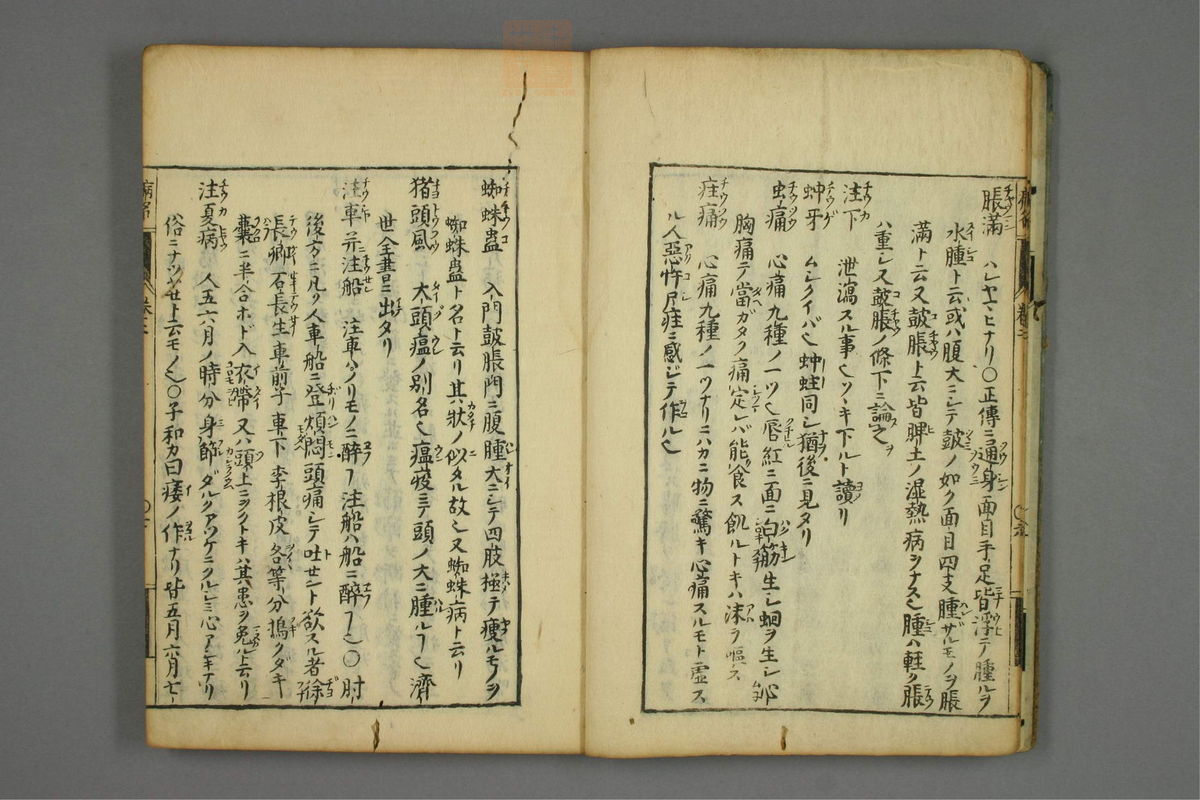 脹滿 ハレヤマヒナリ○正傳ニ通身面目手足皆浮テ腫ルヲ
水腫ト云或ハ腹大ニシテ皷ノ如ク面目四支腫サルモノヲ脹
滿ト云又皷脹ト云皆脾土ノ湿熱病ヲナス也腫ハ軽ク脹
ハ重シ又皷脹ノ條下ニ論之
注下 泄瀉スル事也ソヽキ下ルト讀リ
蚛牙 ムシクイバ也蚛蛀同シ猶後ニ見タリ
虫痛 心痛九種ノ一ツ也唇紅ニ面ニ白筋生シ蛔ヲ生シ心
胸痛テ當ガタク痛定レバ能食ス飢ルトキハ沫ヲ嘔ス
疰痛 心痛九種ノ一ツナリニハカニ物ニ驚キ心痛スルモト虚ス
ル人惡忤尸疰ニ感ジテ作ル也
蜘蛛蠱 入門皷脹門ニ腹腫大ニシテ四肢極テ瘦ルモノヲ
蜘蛛蠱ト名ト云リ其状ノ似タル故也又蜘蛛病ト云リ
猪頭風 大頭瘟ノ別名也瘟疫ニテ頭ノ大ニ腫ルヽ也濟
世全書ニ出タリ
注車并注船 注車ハノリモノニ醉フ注船ハ船ニ醉フ也○肘
後方ニ凡ソ人車船ニ登煩悶頭痛シテ吐セント欲スル者徐
長卿 石長生 車前子 車下李根皮 各等分搗クダキ
嚢ニ半合ホド入衣帶又ハ頭上ニツクトキハ其患ヲ免ルト云リ
注夏病 人五六月ノ時分身節ダルクアワケニクルシミ心アシキナリ
俗ニナツヤセト云モノ也○子和カ曰痿ノ作ナリ皆五月六月七